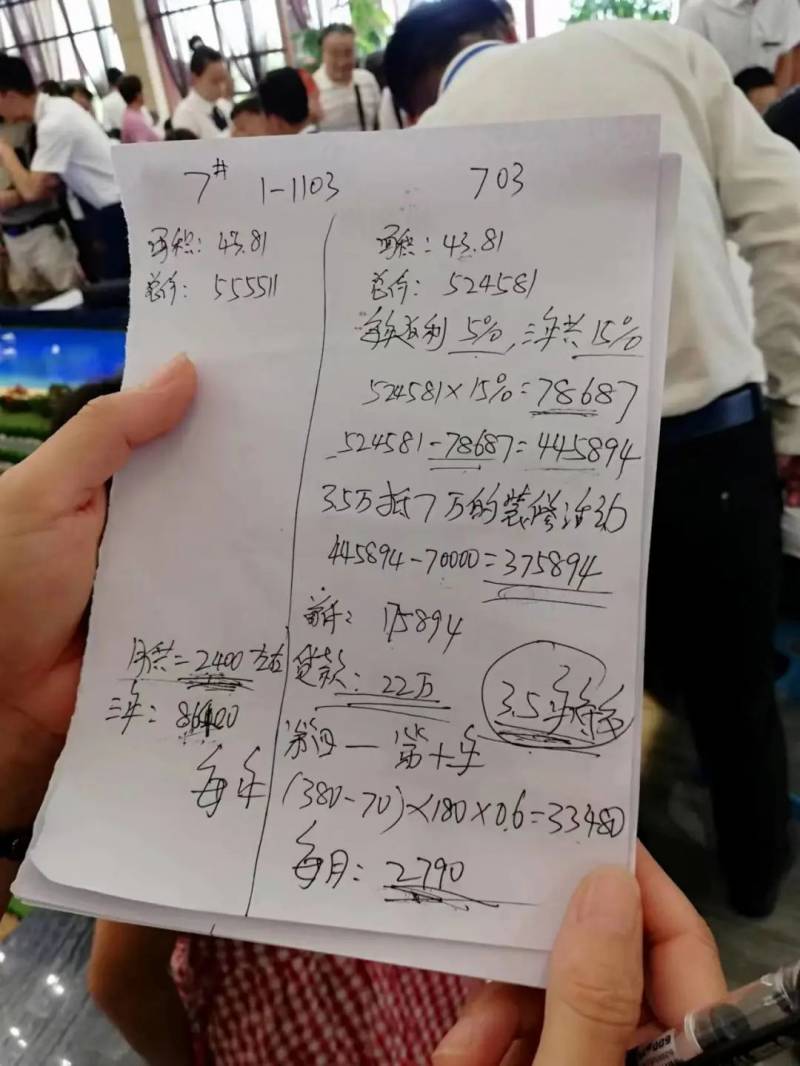 7# 1-1103
面积：43.81
总价：555511
月供=2400左右
三年：86400
703
面积：43.81
总价：524581
每年返利5%,三年共15%
524581×15%=78687
524581-78687=445894
3.5万抵7万的装修活动
445894-70000=375894
首付：175894
贷款：22万
3.5年
第四—第十年
每年(380-70)×180×0.6=33480
每月：2790